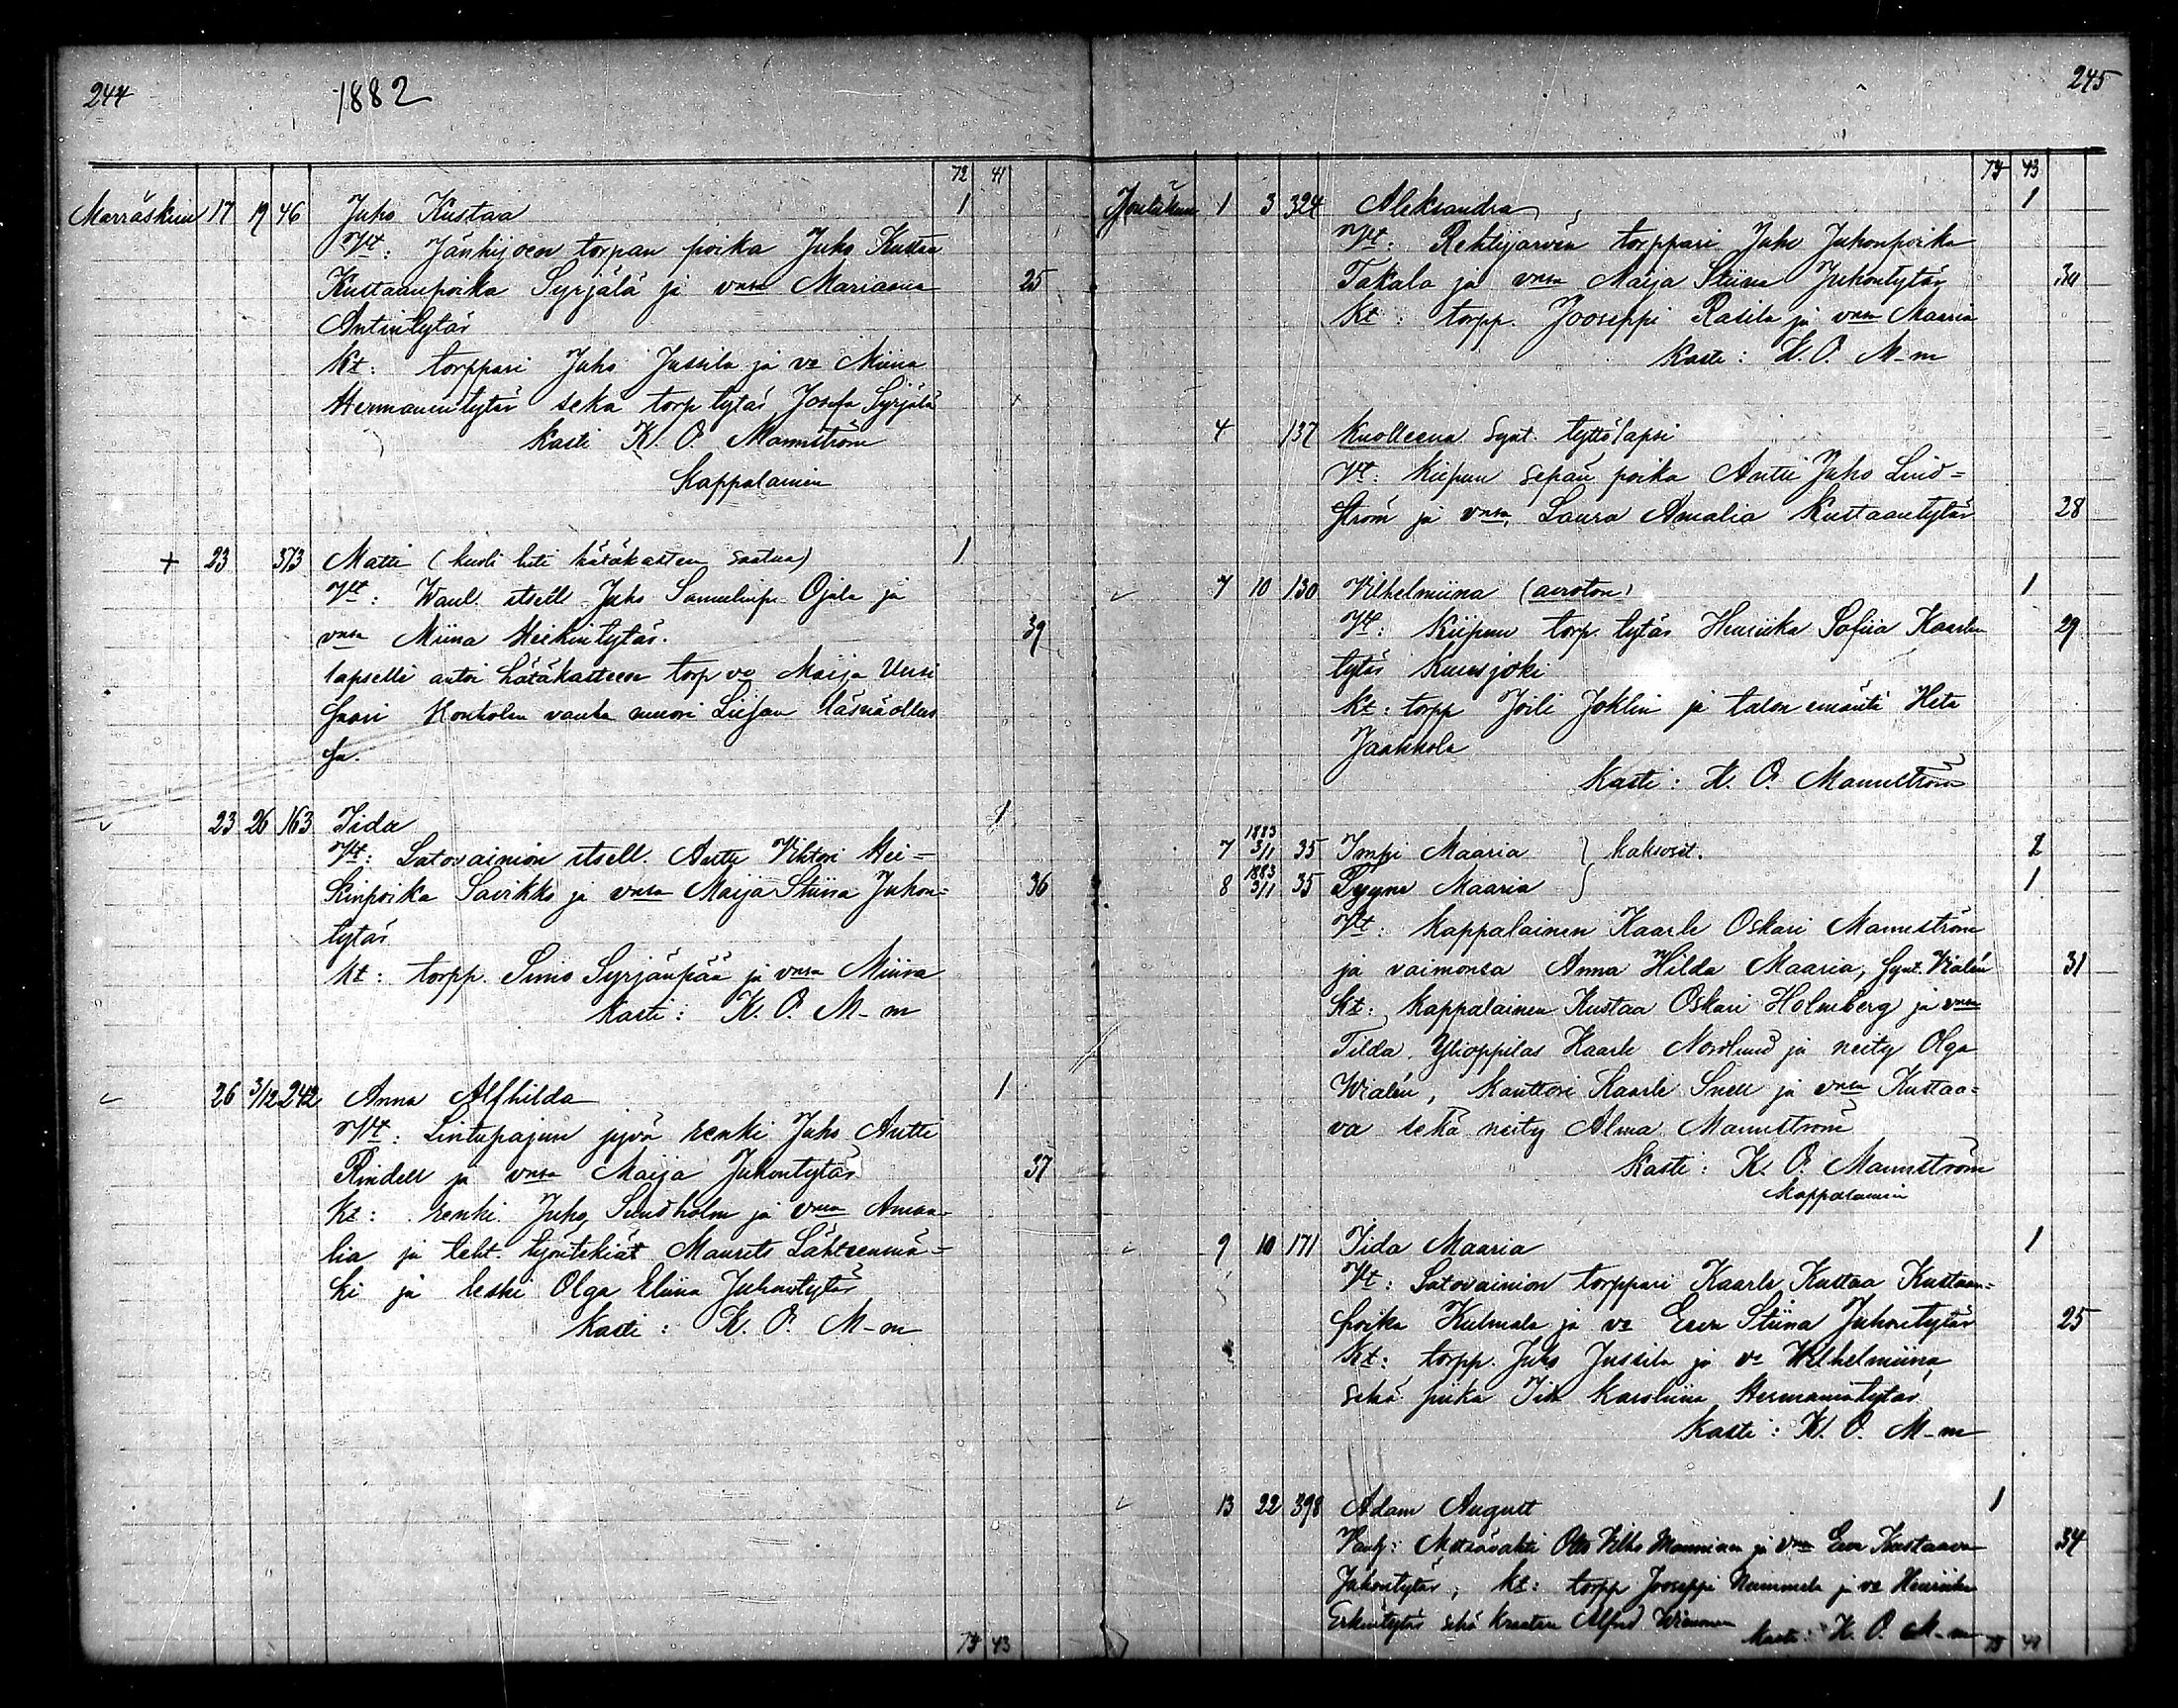 244 1882
72 41
Marraskuu 17 19 46 Juho Kustaa 1
Vt: Jänhijoen torpan poika Juho Kustaa
Kustaanpoika Syrjälä ja vnsa Mariaana 25
Antintytär
Kt: torppari Juho Jussila ja vo Miina
Hermanintytär seka torp tytär Josefa Syrjälä
Kasti K. O. Mannström
Kappalainen
+ 23 373 Matti (kuoli heti hätäkasteen saatua) 1
Vt: itsell. Juho Samulinp. Ojala ja
vnsa Miina Heikintytär. 39
lapselle antoi hätäkasteen torp vo Maija Uusi
vanha muori Liisan läsnäollen
sa.
23 26 163 Iida 1
Vt: Latovainion itsell. Antti Vihtori Hei=
kinpoika Savikko ja vnsa Maija Stiina Juhon= 36
tytär
Kt: torpp. Simo Syrjänpää ja vnsa Miina
Kasti: K. O. M-m
26 3/12 242 Anna Alfhilda 1
Vt: Lintupajun jyvä renki Juho Antti
Rindell ja vnsa Maija Juhontytär 37
Kt: renki Juho Sundholm ja vnsa Amaa=
lia ja teht. työntekiät Maurits Lähteenmä=
ki ja leski Olga Eliina Juhontytär
Kasti: K. O. M-m
74 43
245
74 43
Joulukuu 1 3 324 Aleksandra 1
Vt: Rehtijärven torppari Juho Juhonpoika
Takala ja vnsa Maija Stiina Juhontytär
Kt: torpp. Jooseppi Rasila ja vnsa Maaria
Kasti: K. O. M-m
4 137 Kuolleena synt. tyttölapsi
Vt: Kiipun sepän poika Antti Juho Lind=
ström ja vnsa Laura Amalia Kustaantytär 28
7 10 130 Vilhelmiina (avioton) 1
Vt: Kiipun torp. tytär Henriika Sofiia Kaarlen 29
tytär Kuusjoki
Kt: torpp Joili Joklin ja talon emäntä Heta
Jaakkola
Kasti: K. O. Mannström
7 1883 3/1 35 Impi Maaria } kaksoset. 2
8 1883 3/1 35 Pyyne Maaria } 1
Vt: Kappalainen Kaarle Oskari Mannström
ja vaimonsa Anna Hilda Maaria, synt. Vialén 31
Kt: Kappalainen Kustaa Oskari Holmberg ja vnsa
Tilda, Ylioppilas Kaarle Nordlund ja neity Olga
Wialén, Kanttori Kaarle Snell ja vnsa Kustaa=
va sekä neity Alma Mannström
Kasti: K. O. Mannström
Kappalainen
9 10 171 Iida Maaria 1
Vt: Latovainion torppari Kaarle Kustaa Kustaan=
poika Kulmala ja vo Eeva Stiina Juhontytär 25
Kt: torpp. Juho Jussila ja vo Wilhelmiina
sekä piika Iida Karoliina Hermanintytär
Kasti: K. O. M-m
13 22 398 Adam August 1
Vanh: Metsävahti Otto Vilho Manninen ja vnsa Eeva Kustaava 34
Juhontytär; Kt: torpp Jooseppi Nummela ja vo Henriika
Erkintytär sekä Alfred
Kasti: K. O. M-m